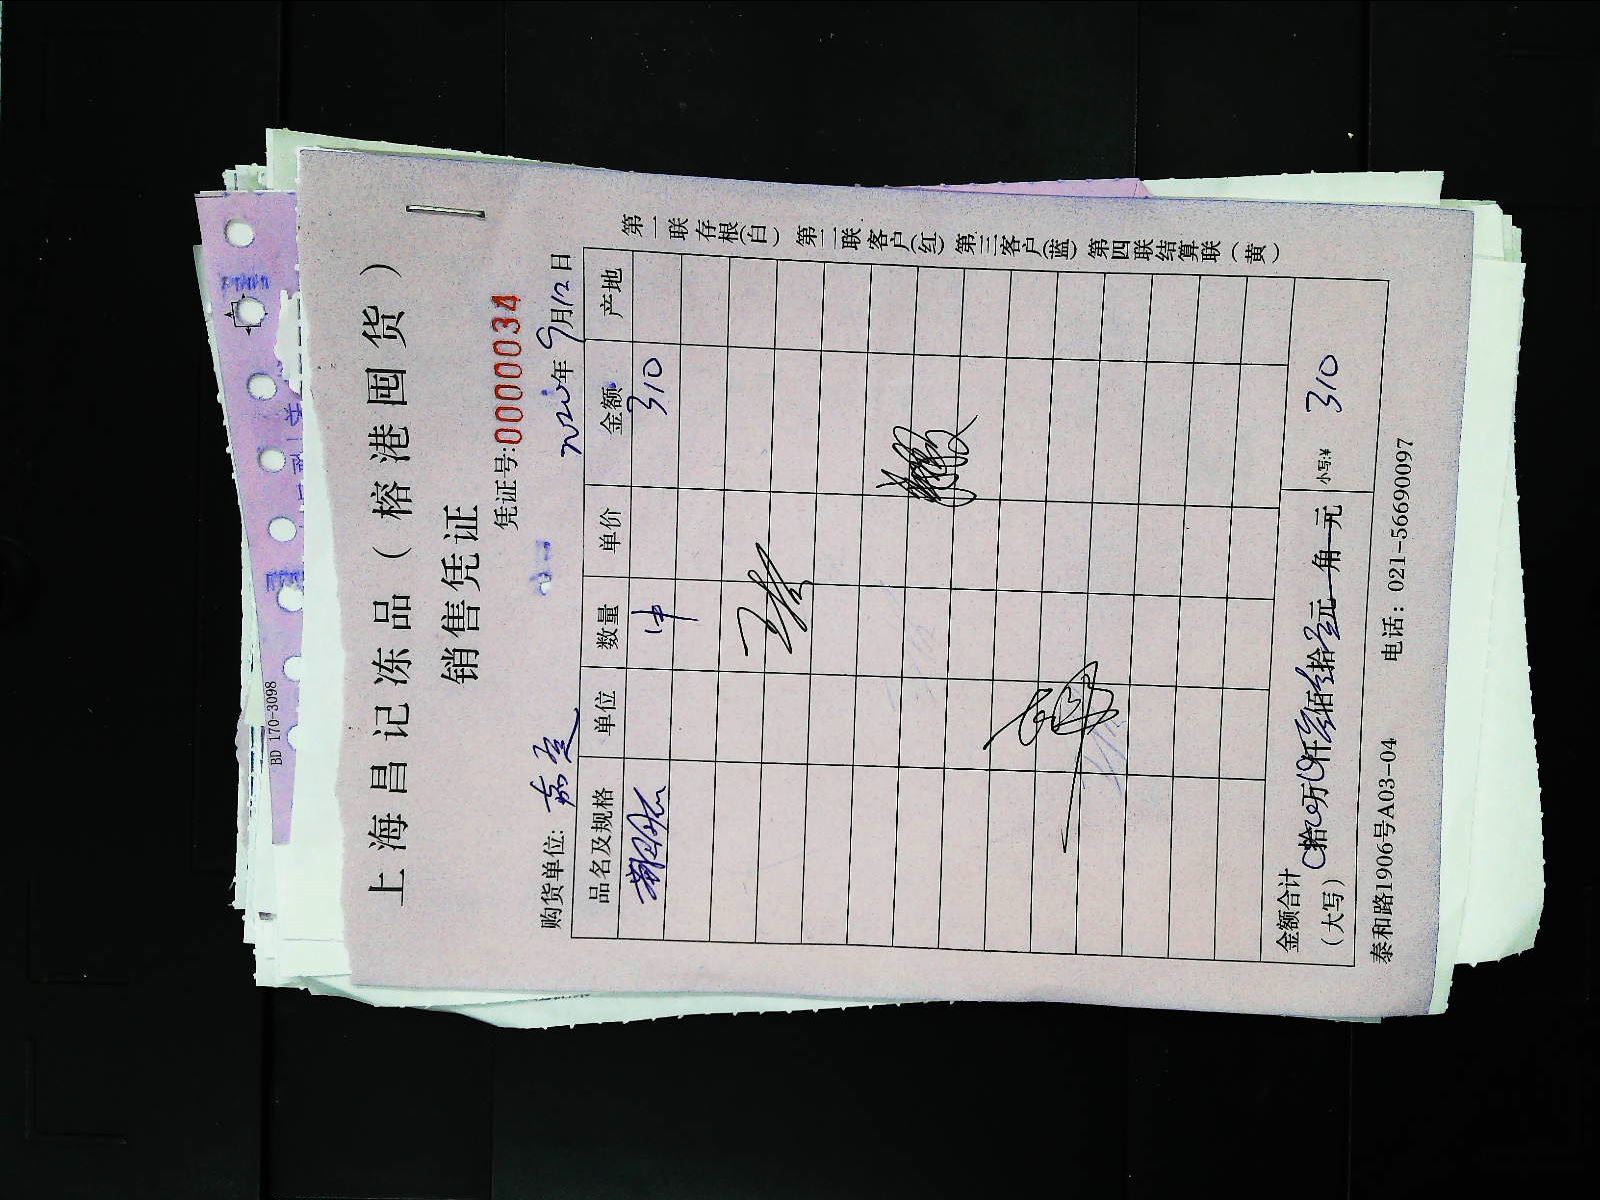 上海昌记冻品（榕港囤货）
销售凭证
凭证号:0000034
购货单位: 2020年9月12日
品名及规格 单位 数量 单价 金额 产地
1件 310
金额合计
（大写） 拾 万 仟叁佰 拾 元 角 元 小写:¥ 310
泰和路1906号A03-04 电话：021-56690097
第一联存根(白) 第二联客户(红) 第三客户(监) 第四联结算联(黄)
BD 170-3098